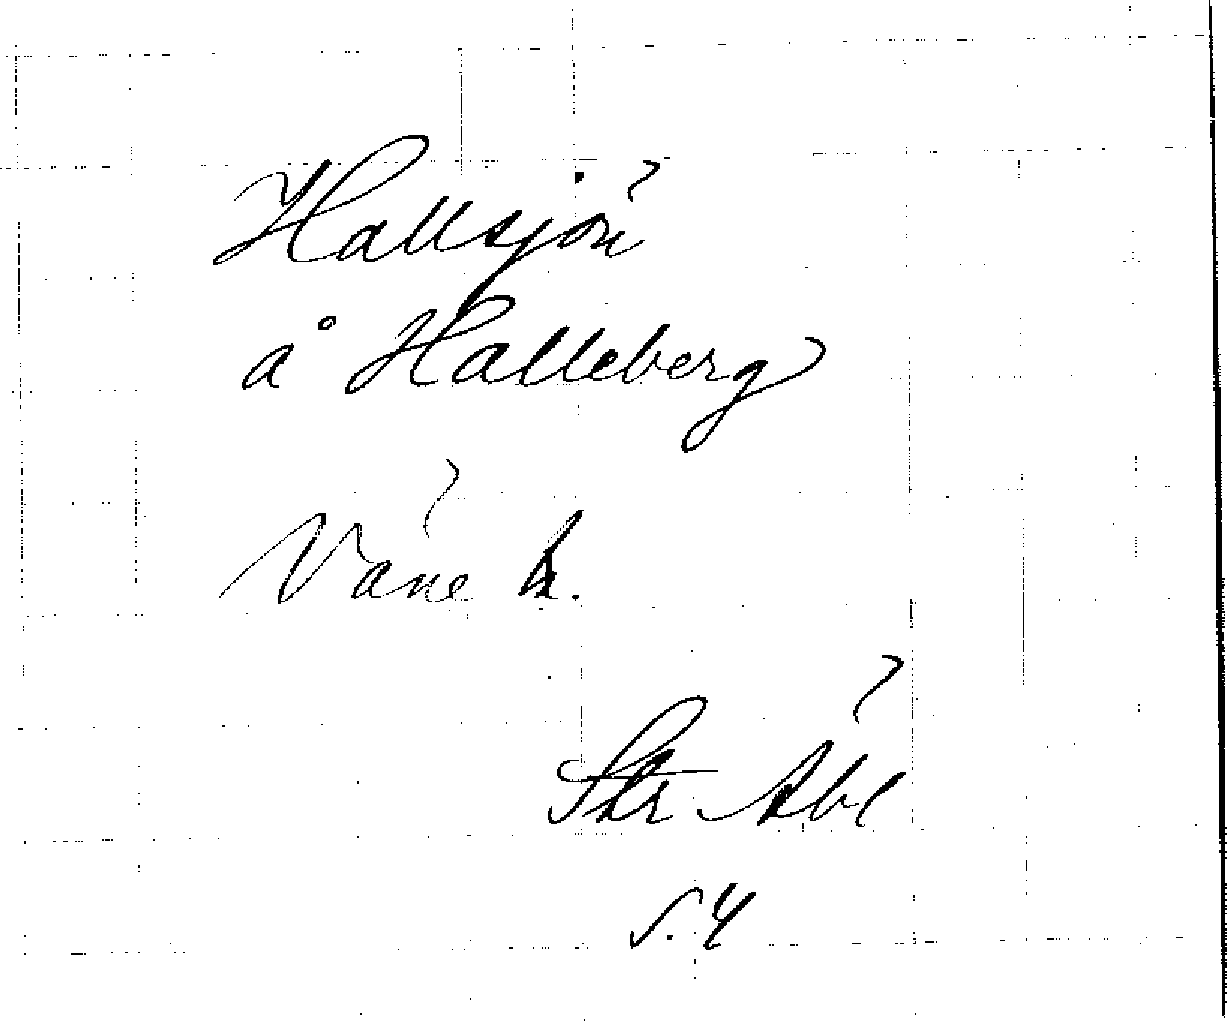 Hallsjön
å Halleberg
Väne h.
Står Åbl
s. 4